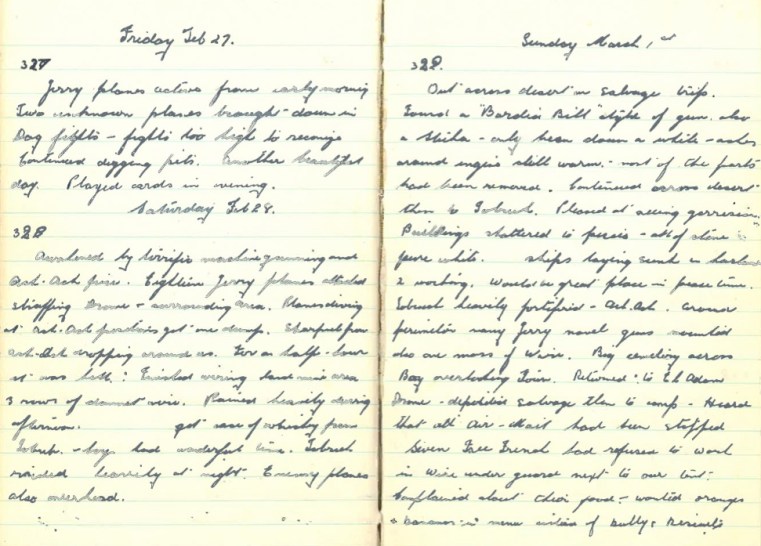 Friday Feb 27.
327
Jerry planes active from early morning
Two unknown planes brought down in
Dog fights - fights too high to reconize
Continued digging pits. Another beautiful
day. Played cards in evening.
Saturday Feb 28.
328
Awakened by terrific machine gunning and
Ack-Ack fire. Eighteen Jerry planes attacked
straffing Drome + surrounding area. Planes diving
at Ack-Ack positions got one dump. Sharpnel from
Ack-Ack dropping around us. For a half-hour
it was hell! Finished wiring land mine area
3 rows of dannet wire. Rained heavily during
afternoon. got case of whisky from
Tobruk. - boys had wonderful time. Tobruk
raided heavily at night. Enemy planes
also overhead.
Sunday March 1st
329.
Out across desert on salvage trip.
Found a "Bardia Bill" style of gun. also
a Stuka - only been down a while - ashes
around engine still warm. - most of the parts
had been removed. Continued across desert
then to Tobruk. Pleased at seeing garrison.
Buildings shattered to pieces - all of stone
pure white. ships laying sunk in harbour
2 working. Would be great place in peace time.
Tobruk heavily fortified - Ack.Ack. around
perimeter many Jerry naval guns mounted
also one mass of Wire. Big cemetery across
Bay overlooking Town. Returned to El Adem
Drome - deposited salvage then to camp - Heard
that all Air-Mail had been stopped
Seven Free French had refused to work
in Wire under guard next to our tent.
Complained about their food - wanted oranges
+ Bananas in menu instead of Bully & Biscuits